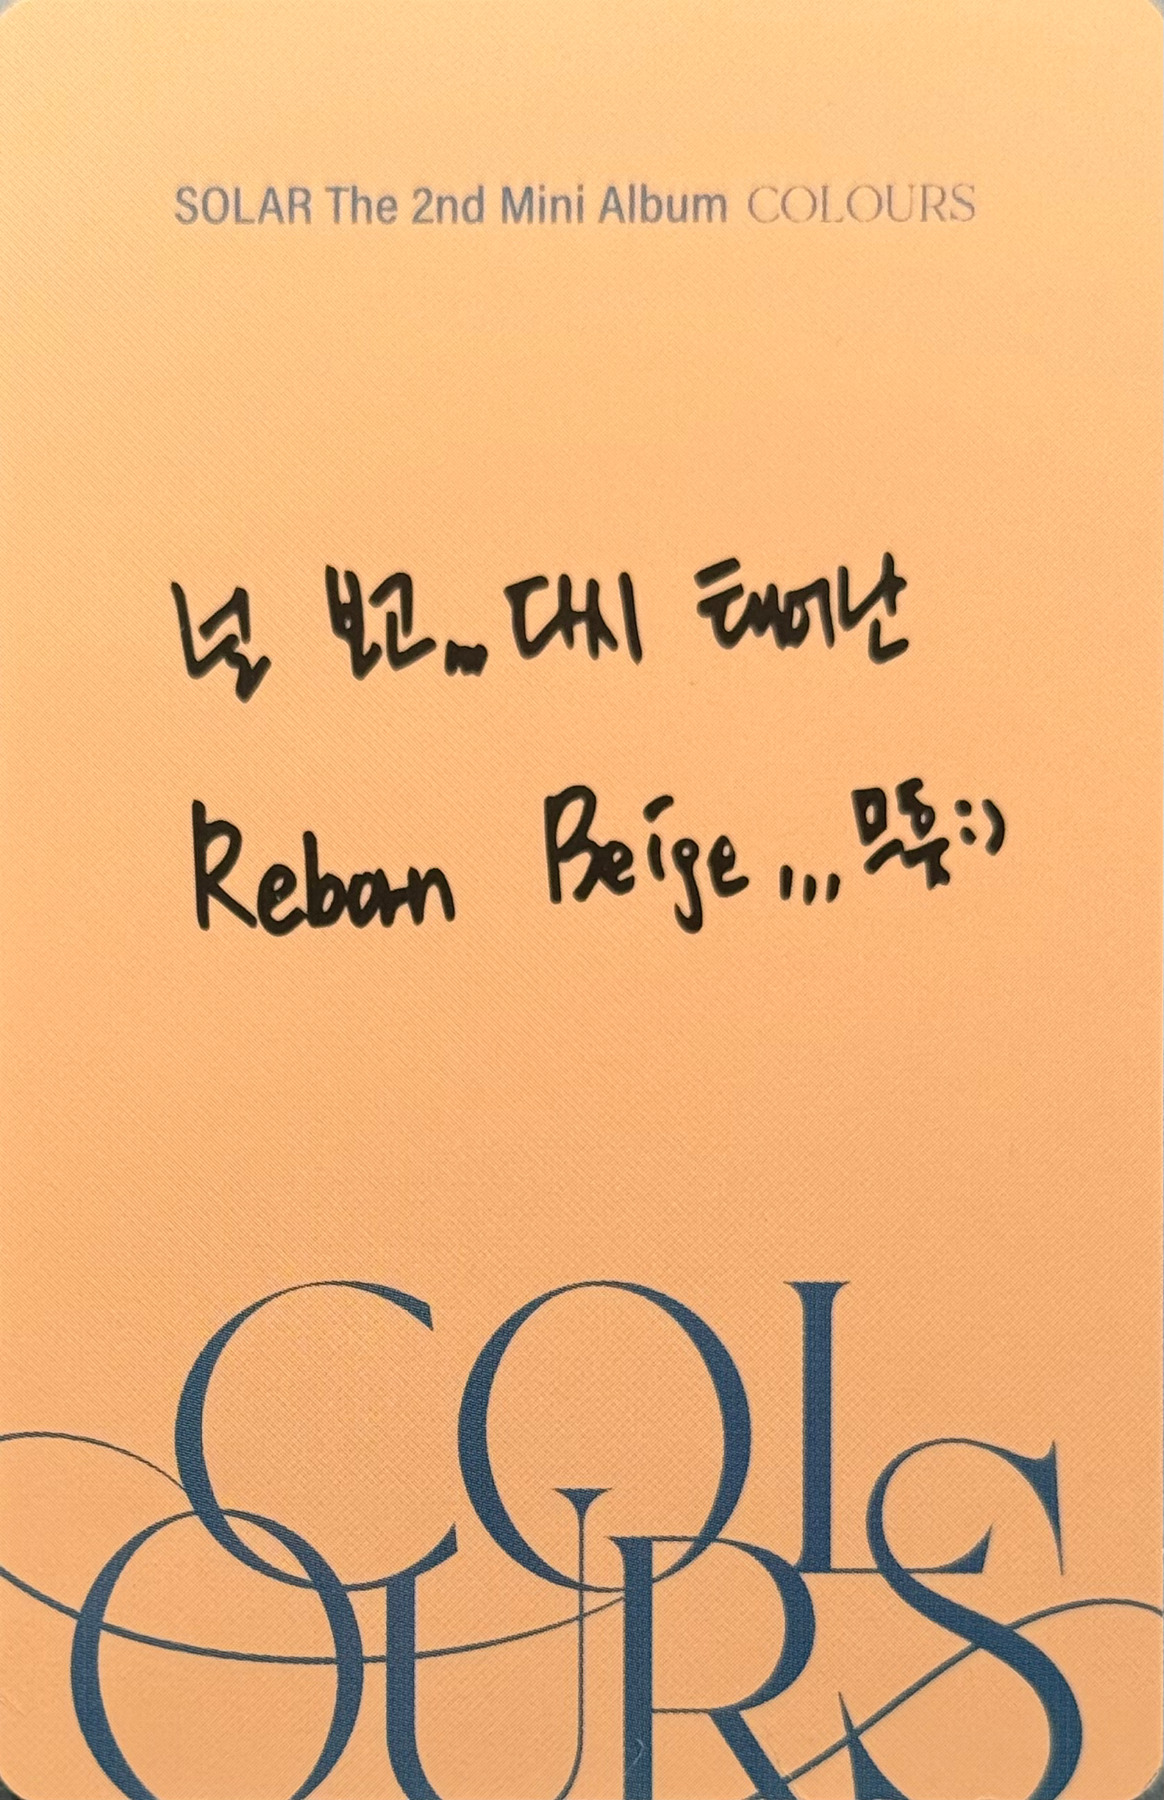 SOLAR The 2nd Mini Album COLOURS
널 보고... 다시 태어난
Reborn Beige ... 모룽:)
COL
OURS